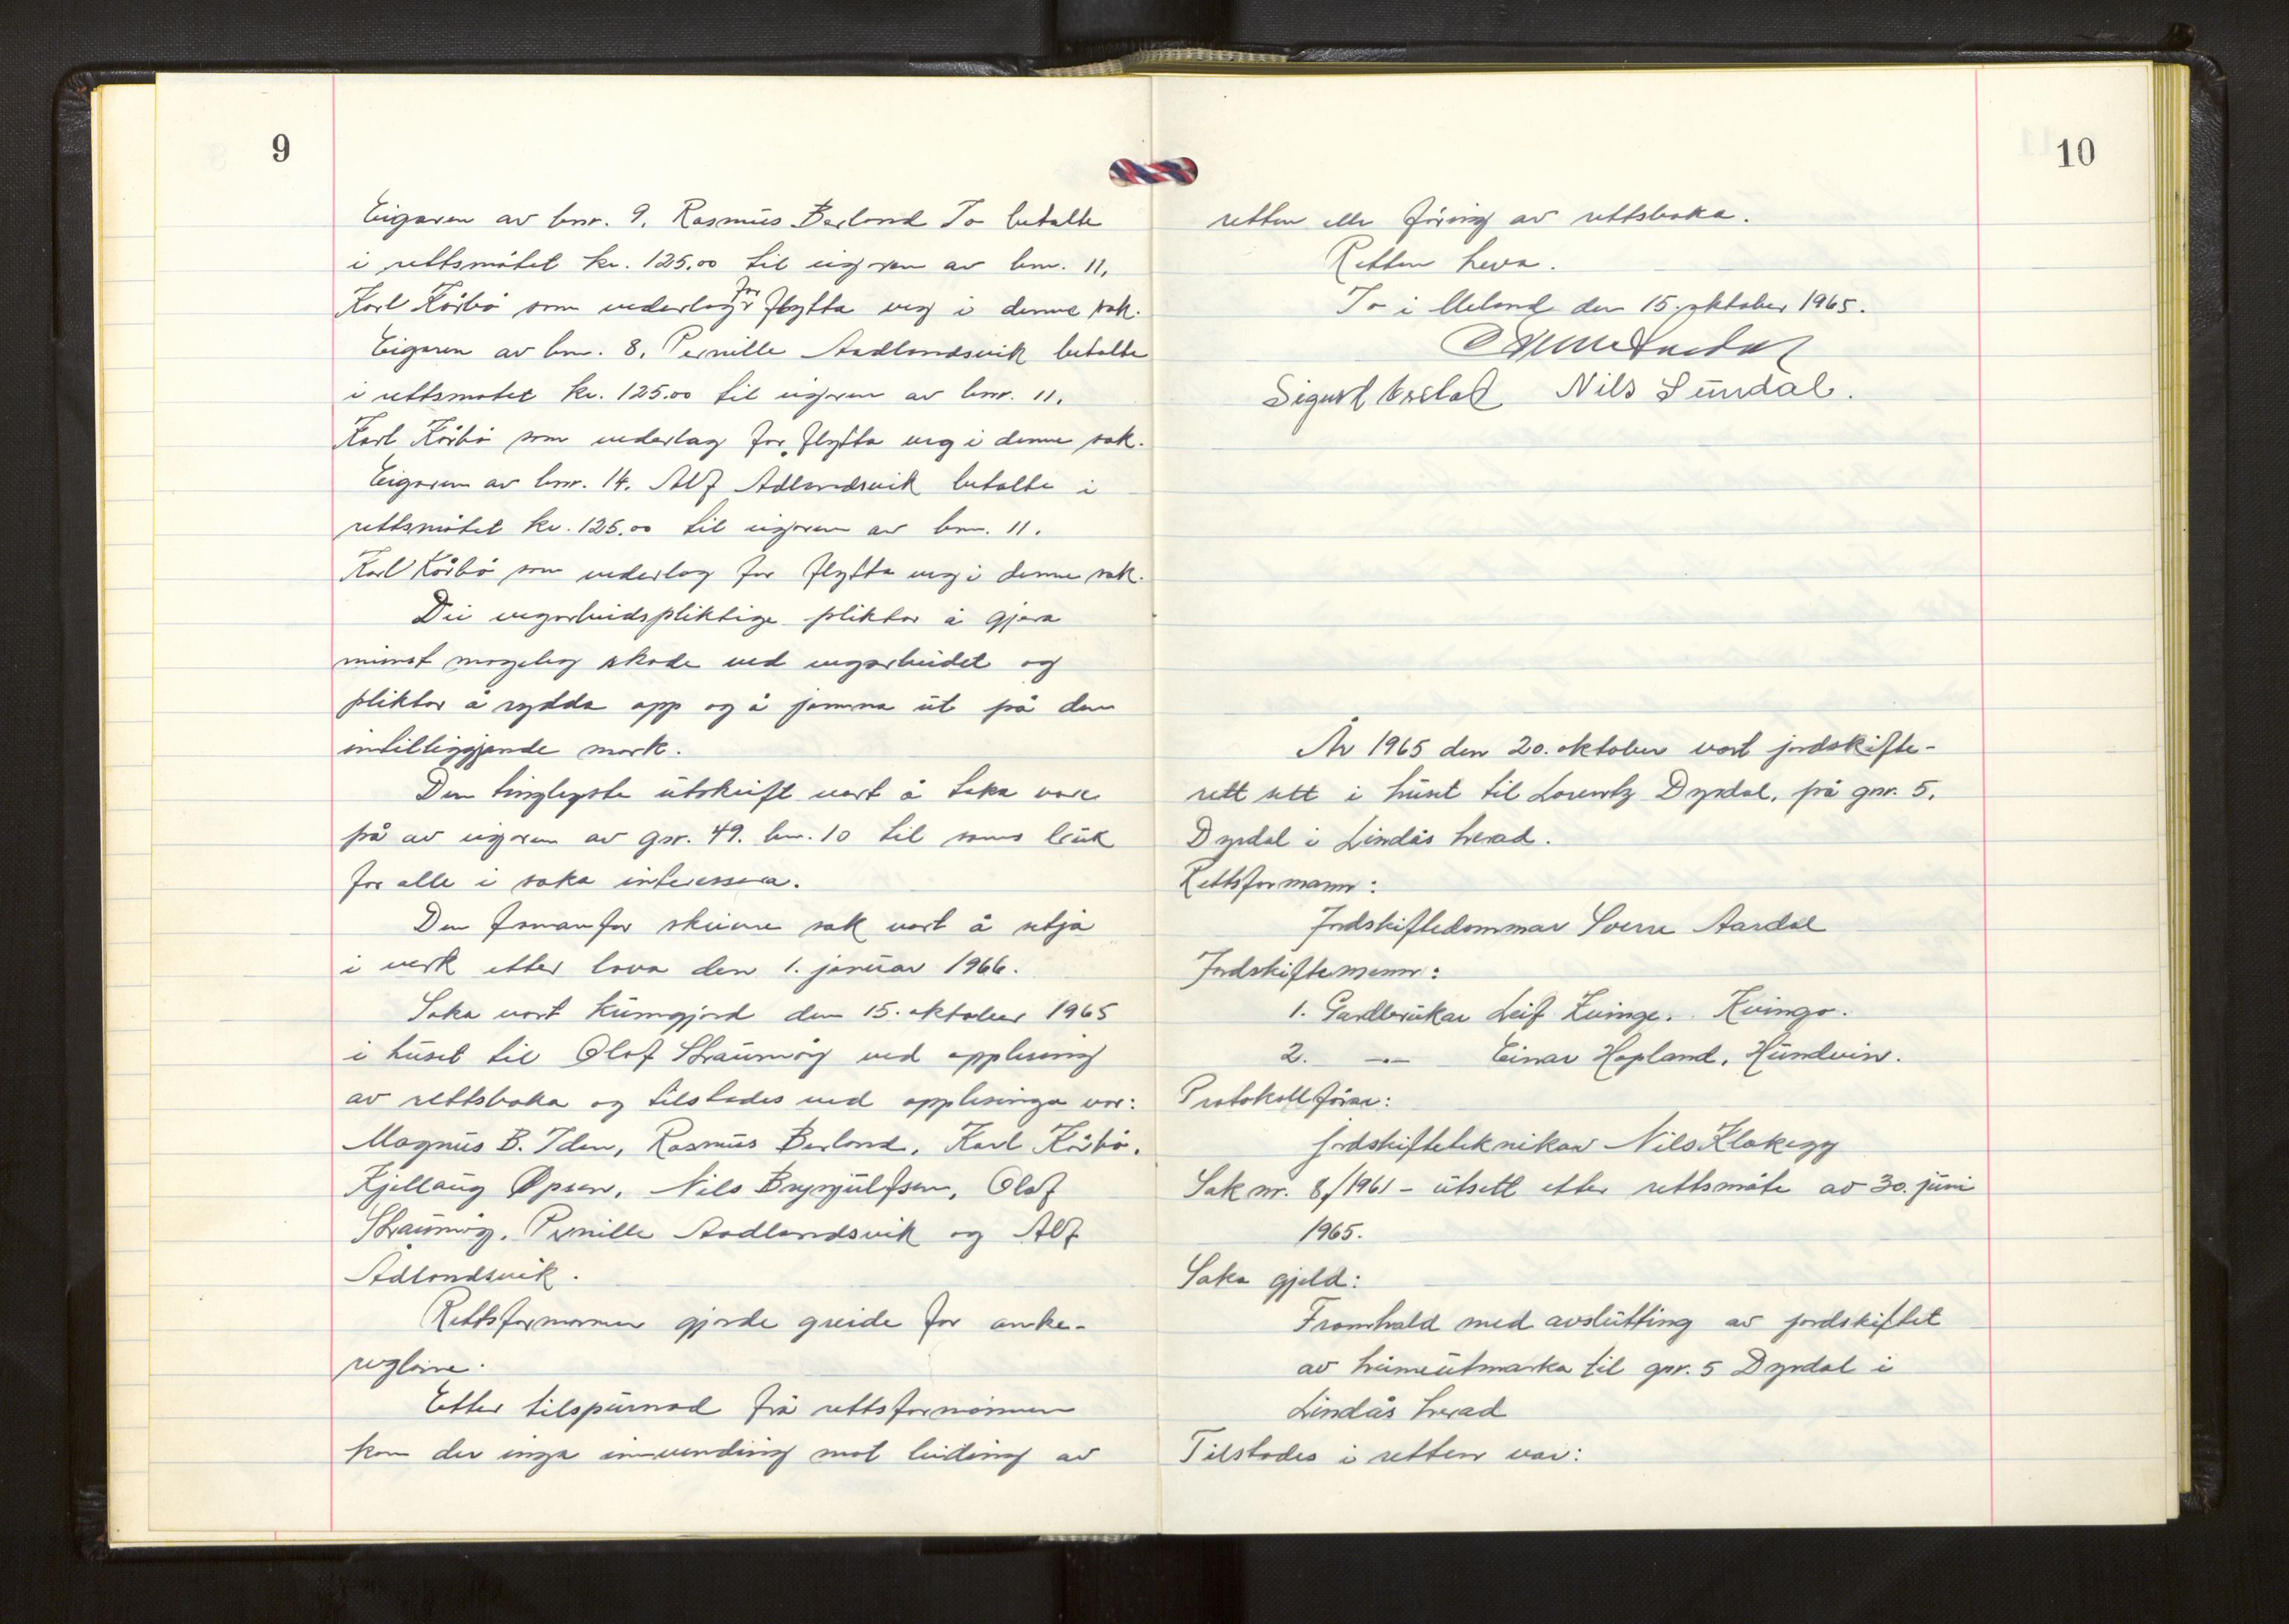 9
Eigaren av bnr. 9. Rasmus Berland To betalte
i rettsmøtet kr. 125.00 til eigaren av bnr. 11,
Karl Kårbø som vederlag for flytta veg i denne sak.
Eigaren av bnr. 8, Pernille Aadlandsvik betalte
i rettsmøtet kr. 125.00 til eigaren av bnr. 11.
Karl Kårbø som vederlag for flytta veg i denne sak.
Eigaren av bnr. 14. Alf Adlandsvik betalte i
rettsmøtet kr. 125.00 til eigaren av bnr. 11.
Karl Kårbø som vederlag for flytta veg i denne sak.
Dei vegarbeidspliktige pliktar å gjera
minst mogeleg skade ved vegarbeidet og
pliktar å rydda opp og å jamna ut på den
intilliggjande mark.
Den tinglegste utskrift vart å taka vare
på av eigaren av gnr. 49. bnr. 10 til sams bruk
for alle i saka interessera.
Den framanfor skrivne sak vart å setja
i verk etter lova den 1. januar 1966.
Saka vart kunngjord den 15. oktober 1965
i huset til Olaf Straumøy ved opplesing
av rettsboka og tilstades ved opplesinga var:
Magnus B. Iden, Rasmus Berland, Karl Kårbø.
Kjellaug Opsen, Nils Brynjulfsen, Olaf
Straumøy. Pernille Aadlandsvik og Alf
Adlandsvik.
Rettsformannen gjorde greide for anke-
reglane.
Etter tilspurnad frå rettsformannen
kom der inga innvending mot leiding av
10
retten elle føring av rettsboka.
Retten heva.
To i Meland den 15. oktober 1965.
Sigurd Nils Sundal.
År 1965 den 20. oktober vart jordskifte-
rett sett i huset til Lorentz Dyrdal, på gnr. 5.
Dyrdal i Lindås herad.
Rettsformann:
Jordskiftedommar Sverre Aardal
Jordskiftemenn:
1. Gardbrukar Leif Kvinge. Kvingo.
2. —"— Einar Hopland, Hundvin.
Protokollførar:
jordskifteteknikar Nils Klakegg
Sak nr. 8/1961 - utsett etter rettsmøte av 30. juni
1965.
Saka gjeld:
Framhald med avslutting av jordskiftet
av heimeutmarka til gnr. 5 Dyrdal i
Lindås herad
Tilstades i retten var: